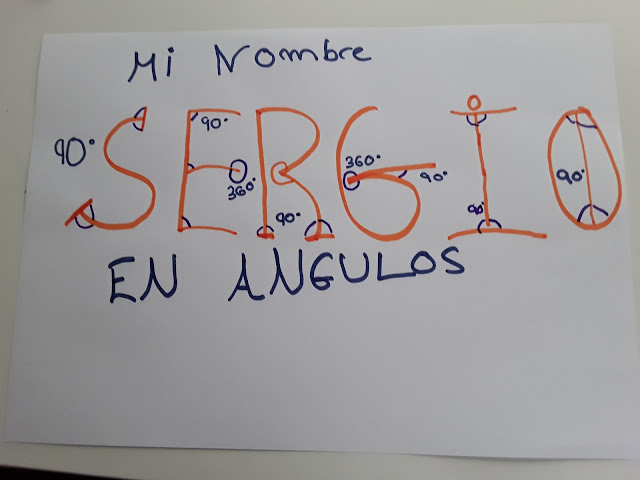 Mi Nombre
90° SERGIO
90° 360° 90° 360° 90° 90° 90°
EN ANGULOS